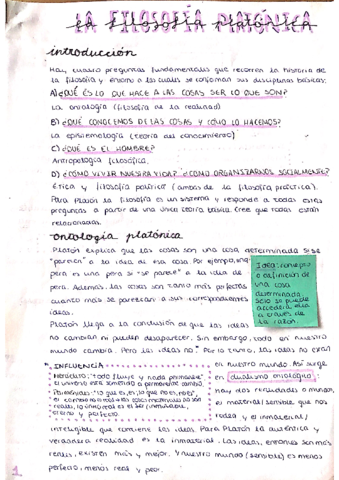 LA FILOSOFÍA PLATÓNICA
introducción
Hay cuatro preguntas fundamentales que recorren la historia de
la filosofía y entorno a las cuales se conforman sus disciplinas básicas:
A) ¿QUÉ ES LO QUE HACE A LAS COSAS SER LO QUE SON?
La ontología (filosofía de la realidad)
B) ¿QUÉ CONOCEMOS DE LAS COSAS Y CÓMO LO HACEMOS?
La epistemología (teoría del conocimiento)
C) ¿QUÉ ES EL HOMBRE?
Antropología filosófica.
D) ¿CÓMO VIVIR NUESTRA VIDA? ¿CÓMO ORGANIZARNOS SOCIALMENTE?
Ética y filosofía política (ambas de la filosofía práctica).
Para Platón la filosofía es un sistema y responde a todas estas
preguntas a partir de una única teoría básica. Cree que todas están
relacionadas.
ontología platónica
Platón explica que las cosas son una cosa determinada si se
"parecen" a la idea de esa cosa. Por ejemplo, una
pera es una pera si "se parece" a la idea de
pera. Además, las cosas son tanto más perfectas
cuanto más se parezcan a sus correspondientes
ideas.
Idea: concepto
o definición de
una cosa
determinada.
Solo se puede
acceder a ella
a través de
la razón.
Platón llega a la conclusión de que las ideas
no cambian ni pueden desaparecer. Sin embargo, todo en nuestro
mundo cambia. Pero las ideas no. Por lo tanto, las ideas no están
INFLUENCIA
Heráclito: "todo fluye y nada permanece"
el universo está sometido a permanente cambio.
Parménides: "lo que es, es, lo que no es, no es",
eterno y perfecto
en nuestro mundo. Así surge
en dualismo ontológico:
hay dos realidades o mundos,
el material/sensible que nos
rodea y el inmaterial/
inteligible que contiene las ideas. Para Platón la auténtica y
verdadera realidad es la inmaterial. Las ideas, entonces son más
reales, existen más y mejor. Y nuestro mundo (sensible) es menos
perfecto, menos real y peor.
1